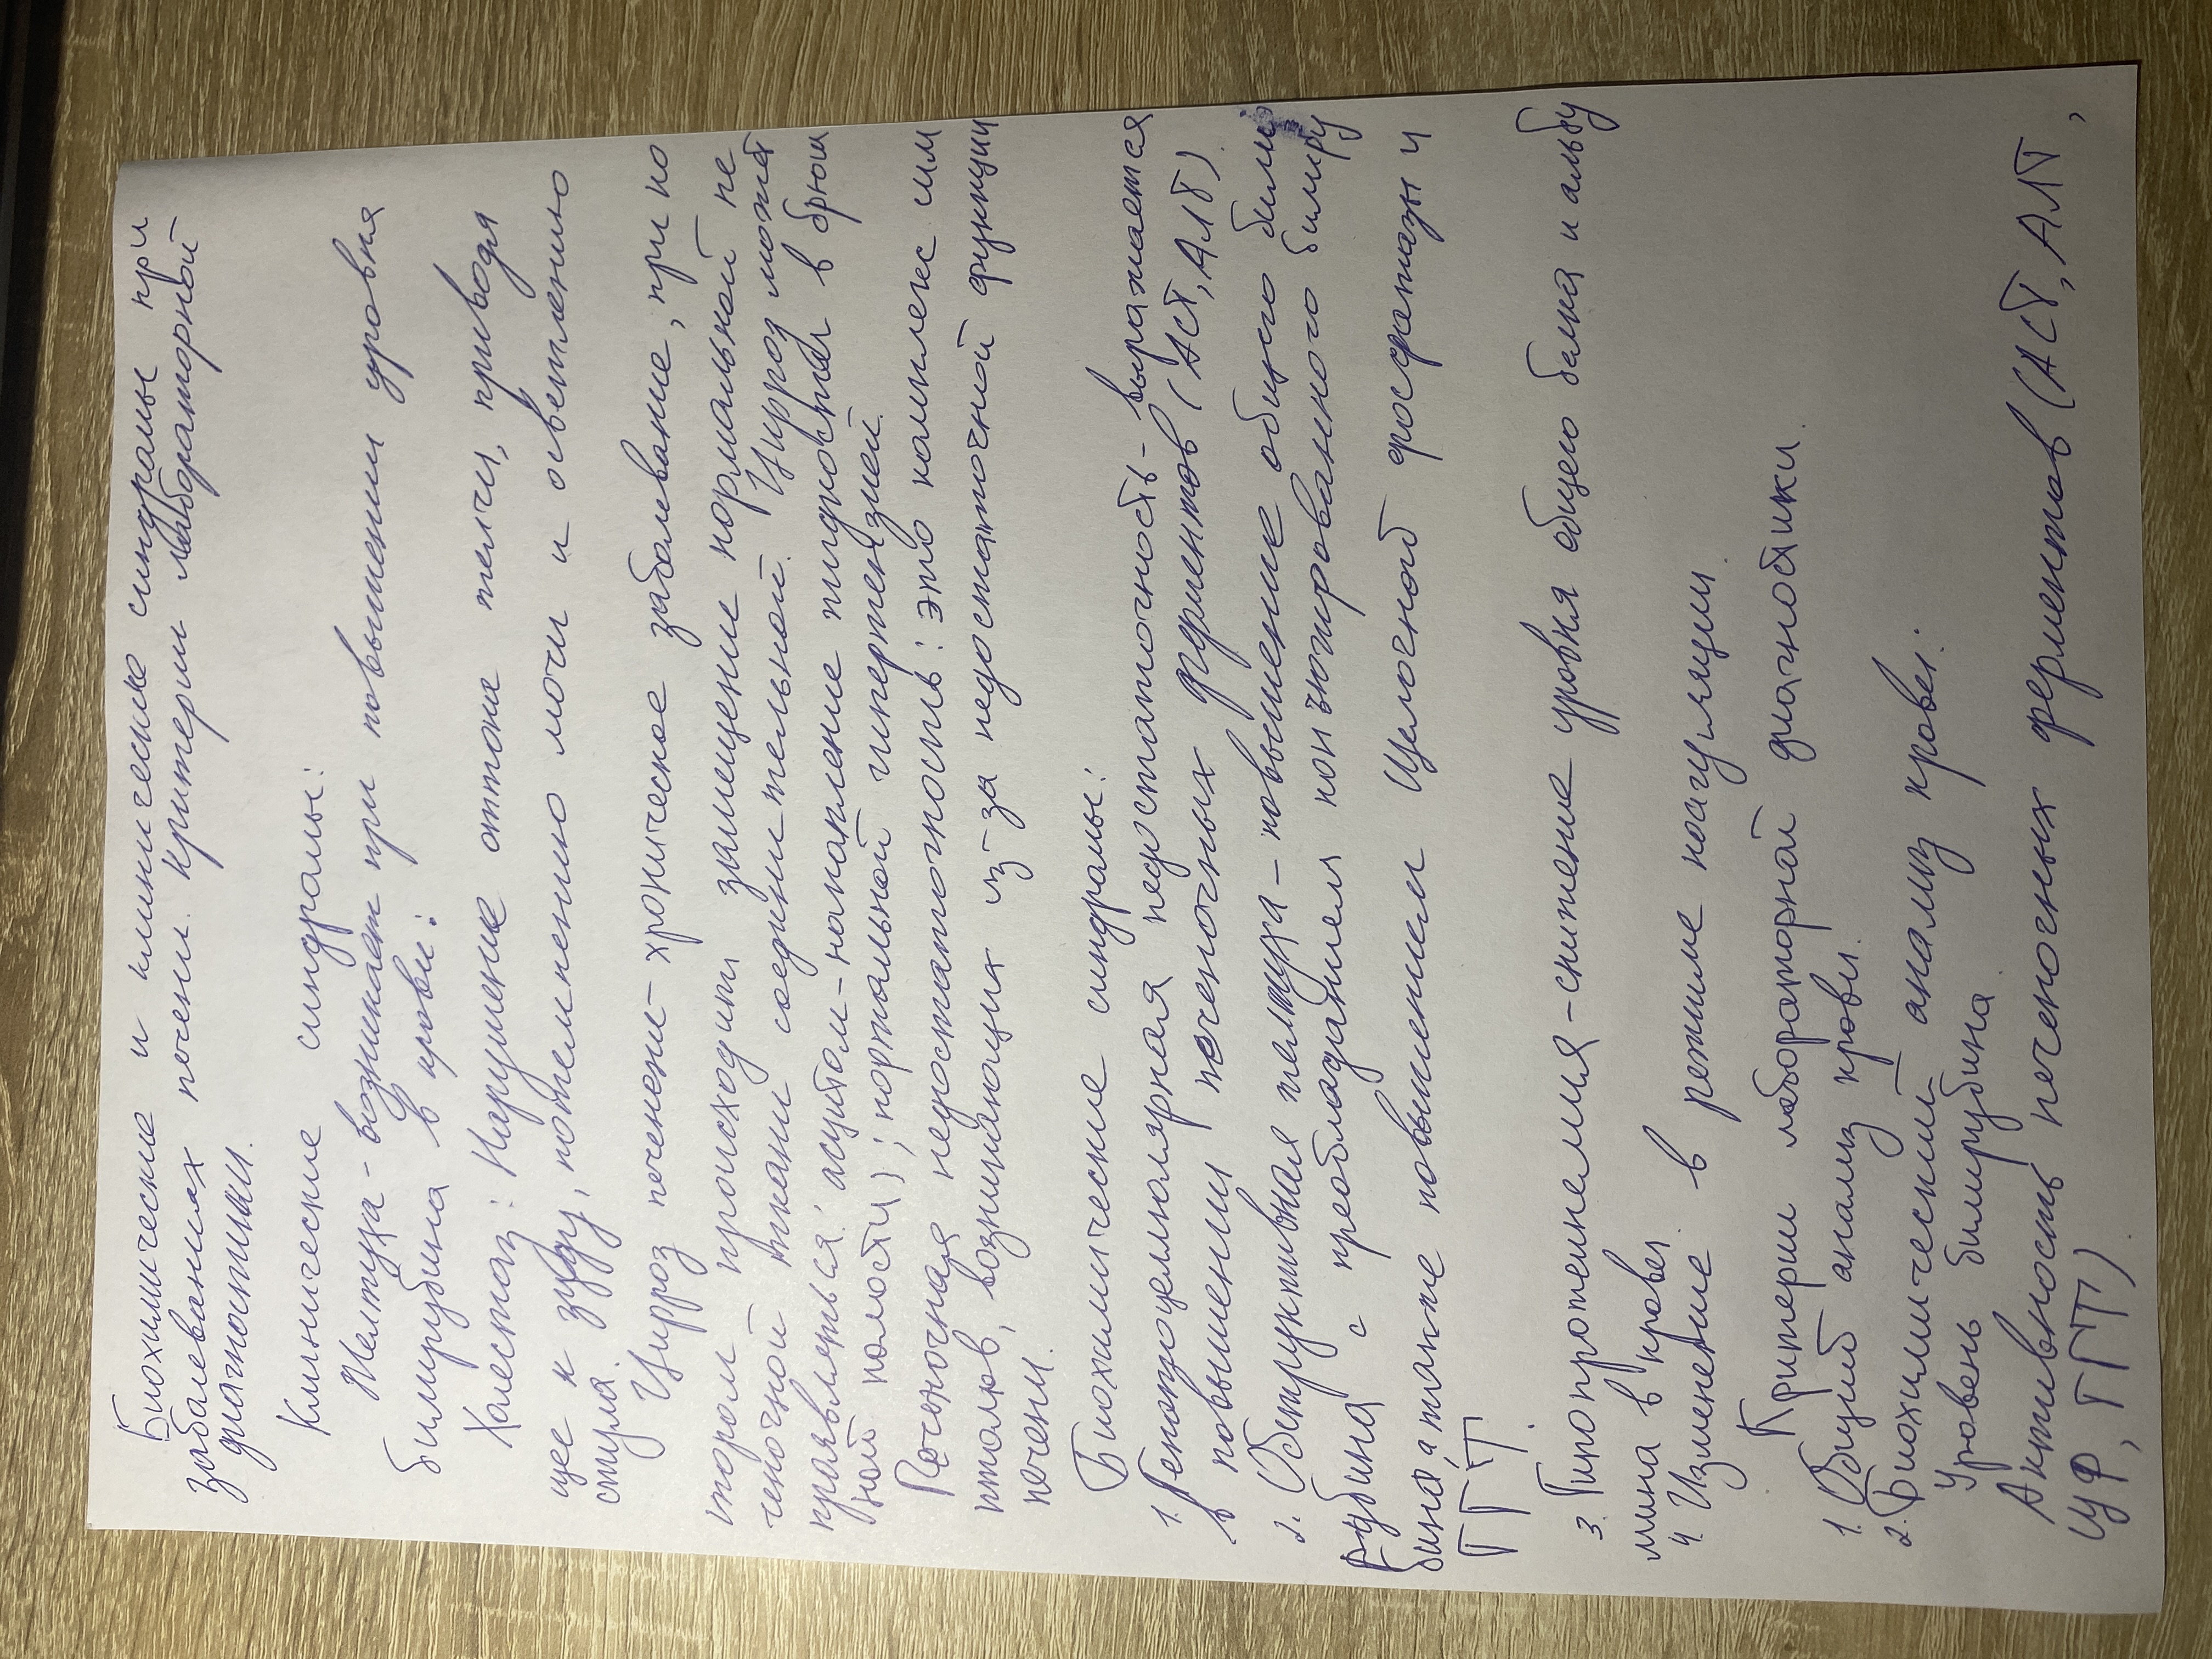 Биохимические и клинические синдромы при
заболеваниях печени. Критерии лабораторной
диагностики.
Клинические синдромы:
Желтуха - возникает при повышении уровня
билирубина в крови.
Холестаз: Нарушение оттоке желчи, приводя
щее к зуду, потемнению мочи и осветлению
стула.
Цирроз печение - хроническое заболевание, при ко
тором происходит замещение нормальной пе
ченочной ткани соединительной. Цирроз может
проявляться: асцитом - накопление жидкостей в брюш
ной полости); портальной гипертензией.
Печеночная недостаточность: это комплекс сим
птомов, возникающих из-за недостаточной функции
печени.
Биохимические синдромы:
1. Гепатоцеллюлярная недостаточность - выражается
в повышении печеночных ферментов (АСТ, АЛТ)
2. Обструктивная желтуха - повышение общего били
рубина с преобладанием конъюгированного билиру
бина, а также повышением Щелочной фосфотазы и
ГГТ.
3. Гипопротеинемия - снижение уровня общего белка и альбу
мина в крови.
4. Изменение в режиме коагуляции.
Критерии лабораторной диагностики.
1. Общий анализ крови.
2. Биохимический анализ крови:
Уровень билирубина.
Активность печеночных ферментов (АСТ, АЛТ,
ЩФ, ГГТ).